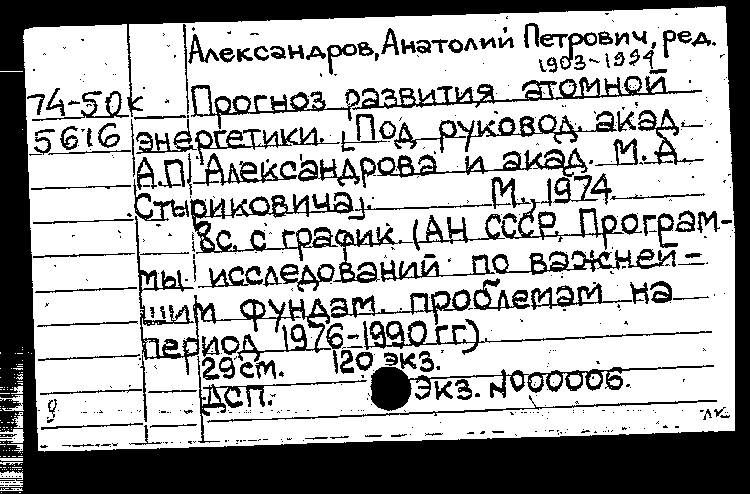 Александров, Анатолий Петрович, ред.
1903-1994
74-50к Прогноз развития атомной
5616 энергетики. [Под руковод. акад.
А.П. Александрова и акад. М.А.
Стыриковича]. М., 1974.
8с. с график. (АН СССР. Програм-
мы исследований по важней-
шим фундам. проблемам на
период 1976-1990 гг.)
29 см. 120 экз.
ДСП. Экз. №000006.
9 лк